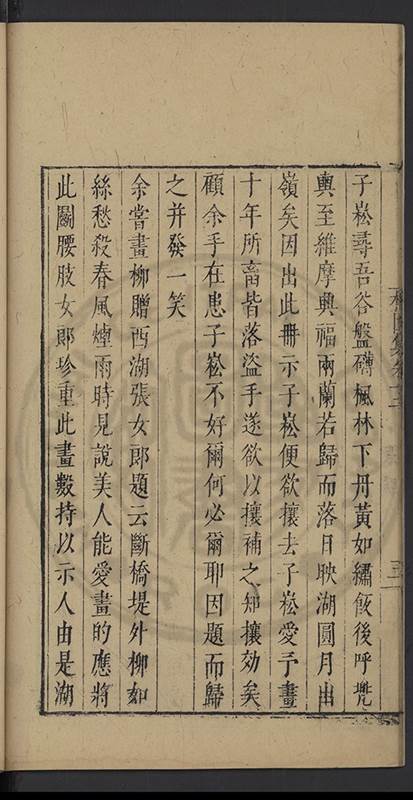 子崧尋吾谷盤礴楓林下丹黃如繡飯後呼凳
輿至維摩興福兩蘭若歸而落日映湖圓月出
嶺矣因出此冊示子崧便欲攘去子崧愛予畫
十年所畜皆落盜手遂欲以攘補之知攘効矣
顧余手在患子崧不好爾何必爾耶因題而歸
之并發一笑
余嘗畫柳贈西湖張女郎題云斷橋堤外柳如
絲愁殺春風煙雨時見說美人能愛畫的應將
此鬬腰肢女郎珍重此畫數持以示人由是湖